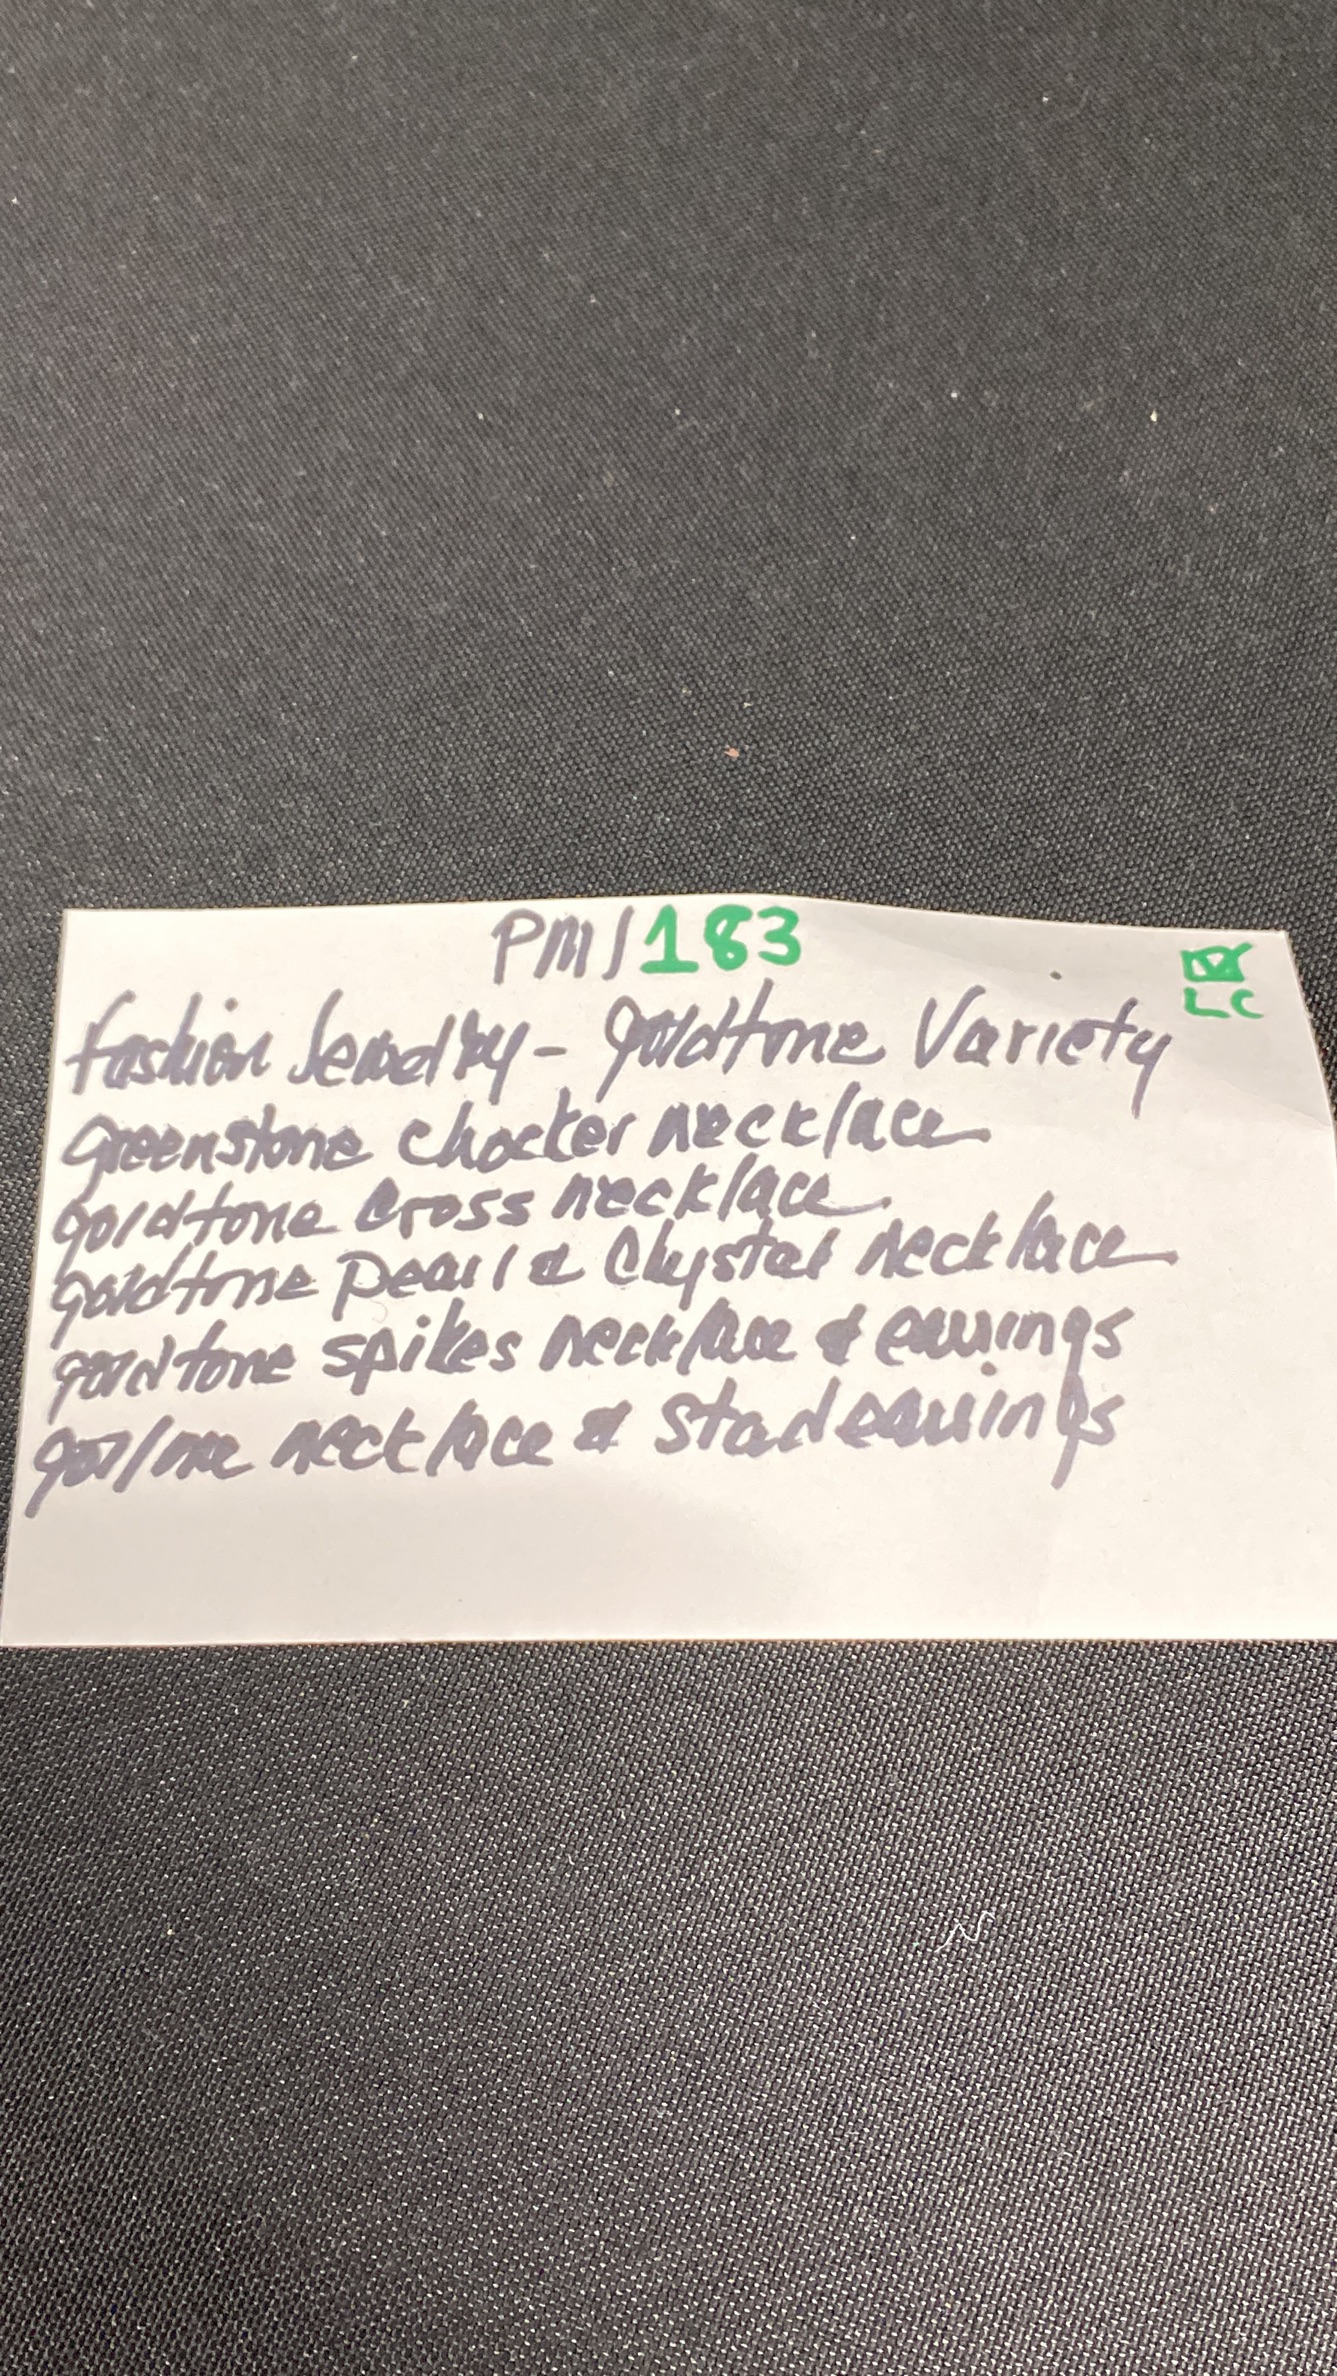 PMJ183
LC
Fashion Jewelry - Goldtone Variety
Greenstone chocker necklace
goldtone cross necklace
goldtone pearl & Chystal necklace
goldtone spikes necklace & earrings
necklace & stud earrings